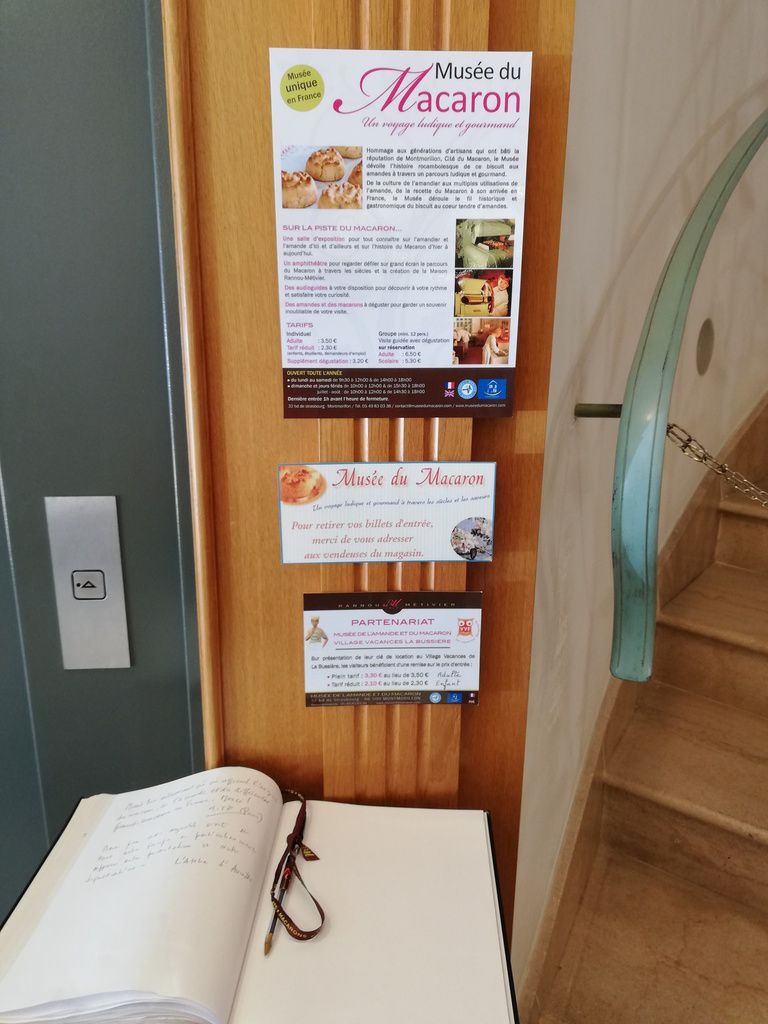 Musée
unique
en France
Musée du
Macaron
Un voyage ludique et gourmand
Hommage aux générations d'artisans qui ont bâti la
réputation de Montmorillon, Cité du Macaron, le Musée
dévoile l'histoire rocambolesque de ce biscuit aux
amandes à travers un parcours ludique et gourmand.
De la culture de l'amandier aux multiples utilisations de
l'amande, de la recette du Macaron à son arrivée en
France, le Musée déroule le fil historique et
gastronomique du biscuit au coeur tendre d'amandes.
SUR LA PISTE DU MACARON...
Une salle d'exposition pour tout connaître sur l'amandier et
l'amande d'ici et d'ailleurs et sur l'histoire du Macaron d'hier à
aujourd'hui.
Un amphithéâtre pour regarder défiler sur grand écran le parcours
du Macaron à travers les siècles et la création de la Maison
Rannou-Métivier.
Des audioguides à votre disposition pour découvrir à votre rythme
et satisfaire votre curiosité.
Des amandes et des macarons à déguster pour garder un souvenir
inoubliable de votre visite.
TARIFS
Individuel
Adulte : 3.50 €
Tarif réduit : 2.30 €
(enfants, étudiants, demandeurs d'emploi)
Supplément dégustation : 3.20 €
Groupe (mini. 12 pers.)
Visite guidée avec dégustation
sur réservation
Adulte : 6.50 €
Scolaire : 5.30 €
OUVERT TOUTE L'ANNÉE
• du lundi au samedi de 9h30 à 12h00 & de 14h00 à 18h00
• dimanche et jours fériés de 10h00 à 12h00 & de 15h30 à 18h00
juillet - août : de 10h00 à 12h00 & de 14h30 à 18h00
Dernière entrée 1h avant l'heure de fermeture.
32 bd de strasbourg - Montmorillon / Tél. 05 49 83 03 38 / contact@museedumacaron.com / www.museedumacaron.com
Musée du Macaron
Un voyage ludique et gourmand à travers les siècles et les saveurs
Pour retirer vos billets d'entrée,
merci de vous adresser
aux vendeuses du magasin.
RANNOU MÉTIVIER
PARTENARIAT
MUSÉE DE L'AMANDE ET DU MACARON
VILLAGE VACANCES LA BUSSIÈRE
VVF
Sur présentation de leur clé de location au Village Vacances de
La Bussière, les visiteurs bénéficient d'une remise sur le prix d'entrée :
• Plein tarif : 3,30 € au lieu de 3,50 € Adulte
• Tarif réduit : 2,10 € au lieu de 2,30 € Enfant
MUSÉE DE L'AMANDE ET DU MACARON
MACARON